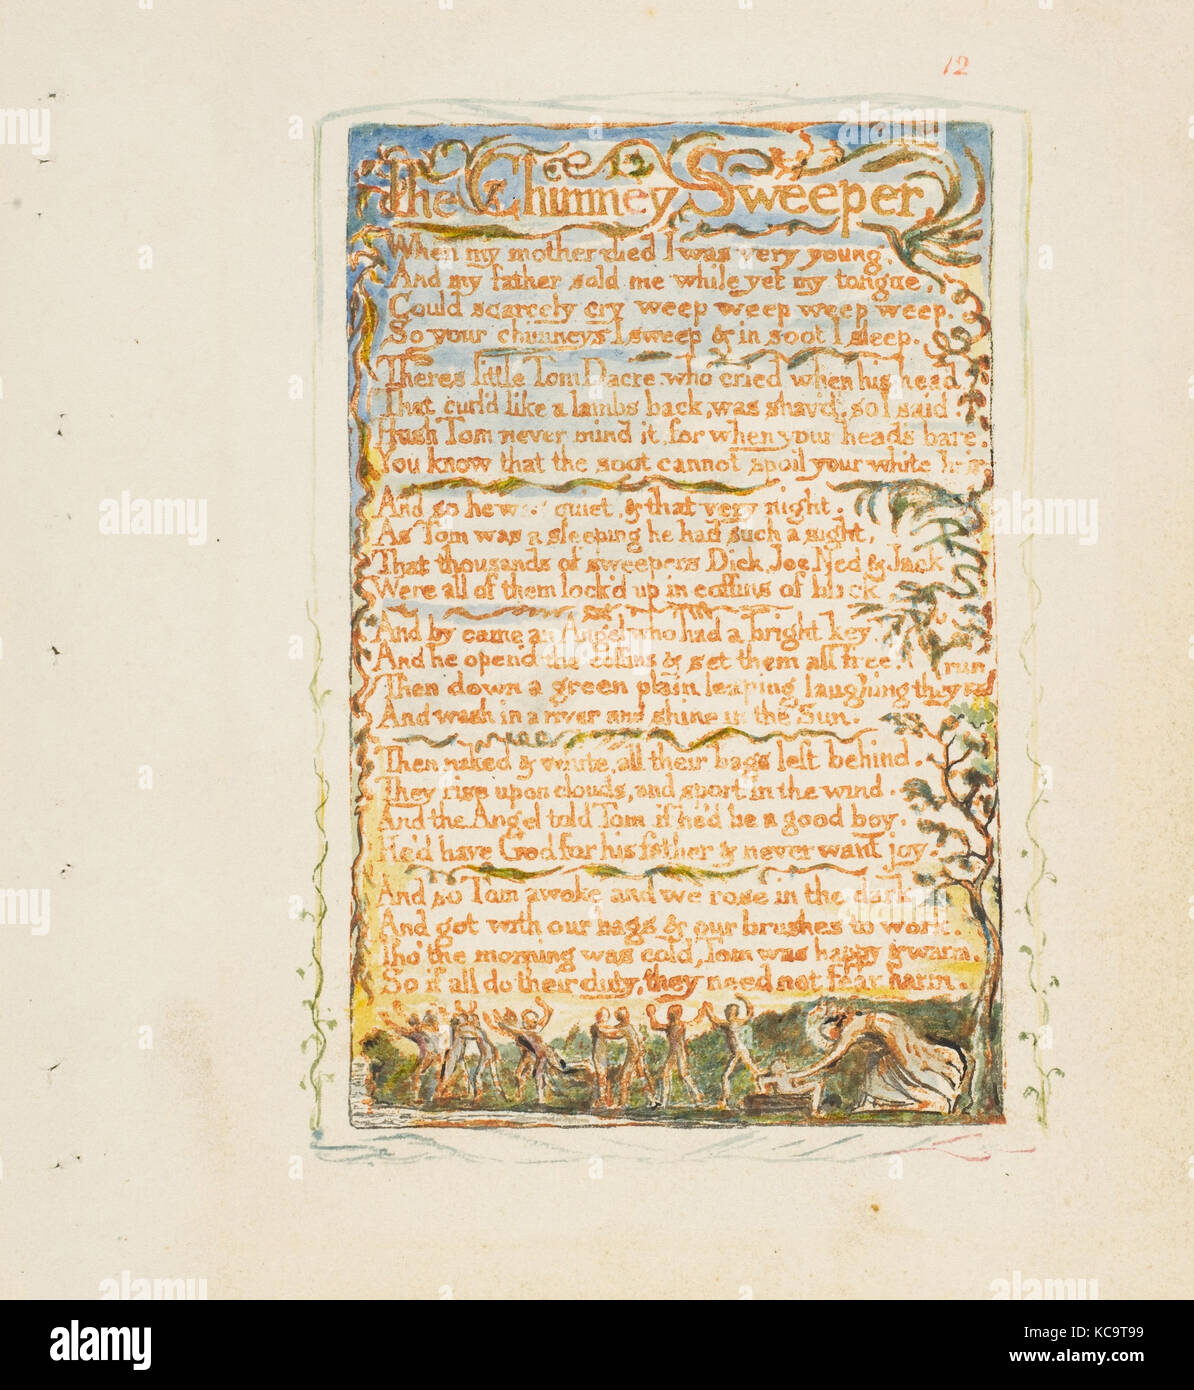 12
The Chimney Sweeper
12
When my mother died I was very young,
And my father sold me while yet my tongue,
Could scarcely cry weep weep weep weep.
So your chimneys I sweep & in soot I sleep.
Theres little Tom Dacre, who cried when his head
That curl'd like a lambs back, was shav'd, so I said.
Hush Tom never mind it, for when your heads bare,
You know that the soot cannot spoil your white hair
And so he was quiet, & that very night.
As Tom was a sleeping he had such a sight,
That thousands of sweepers Dick, Joe, Ned & Jack
Were all of them lock'd up in coffins of black
And by came an Angel who had a bright key
And he open'd the coffins & set them all free.
Then down a green plain leaping laughing they run
And wash in a river and shine in the Sun.
Then naked & white, all their bags left behind.
They rise upon clouds, and sport in the wind.
And the Angel told Tom if he'd be a good boy,
He'd have God for his father & never want joy.
And so Tom awoke and we rose in the dark
And got with our bags & our brushes to work.
Tho' the morning was cold, Tom was happy & warm,
So if all do their duty, they need not fear harm.
alamy
Image ID: KC9T99
www.alamy.com